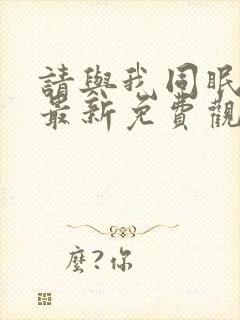 請與我同眠
最新免費觀
麼?你